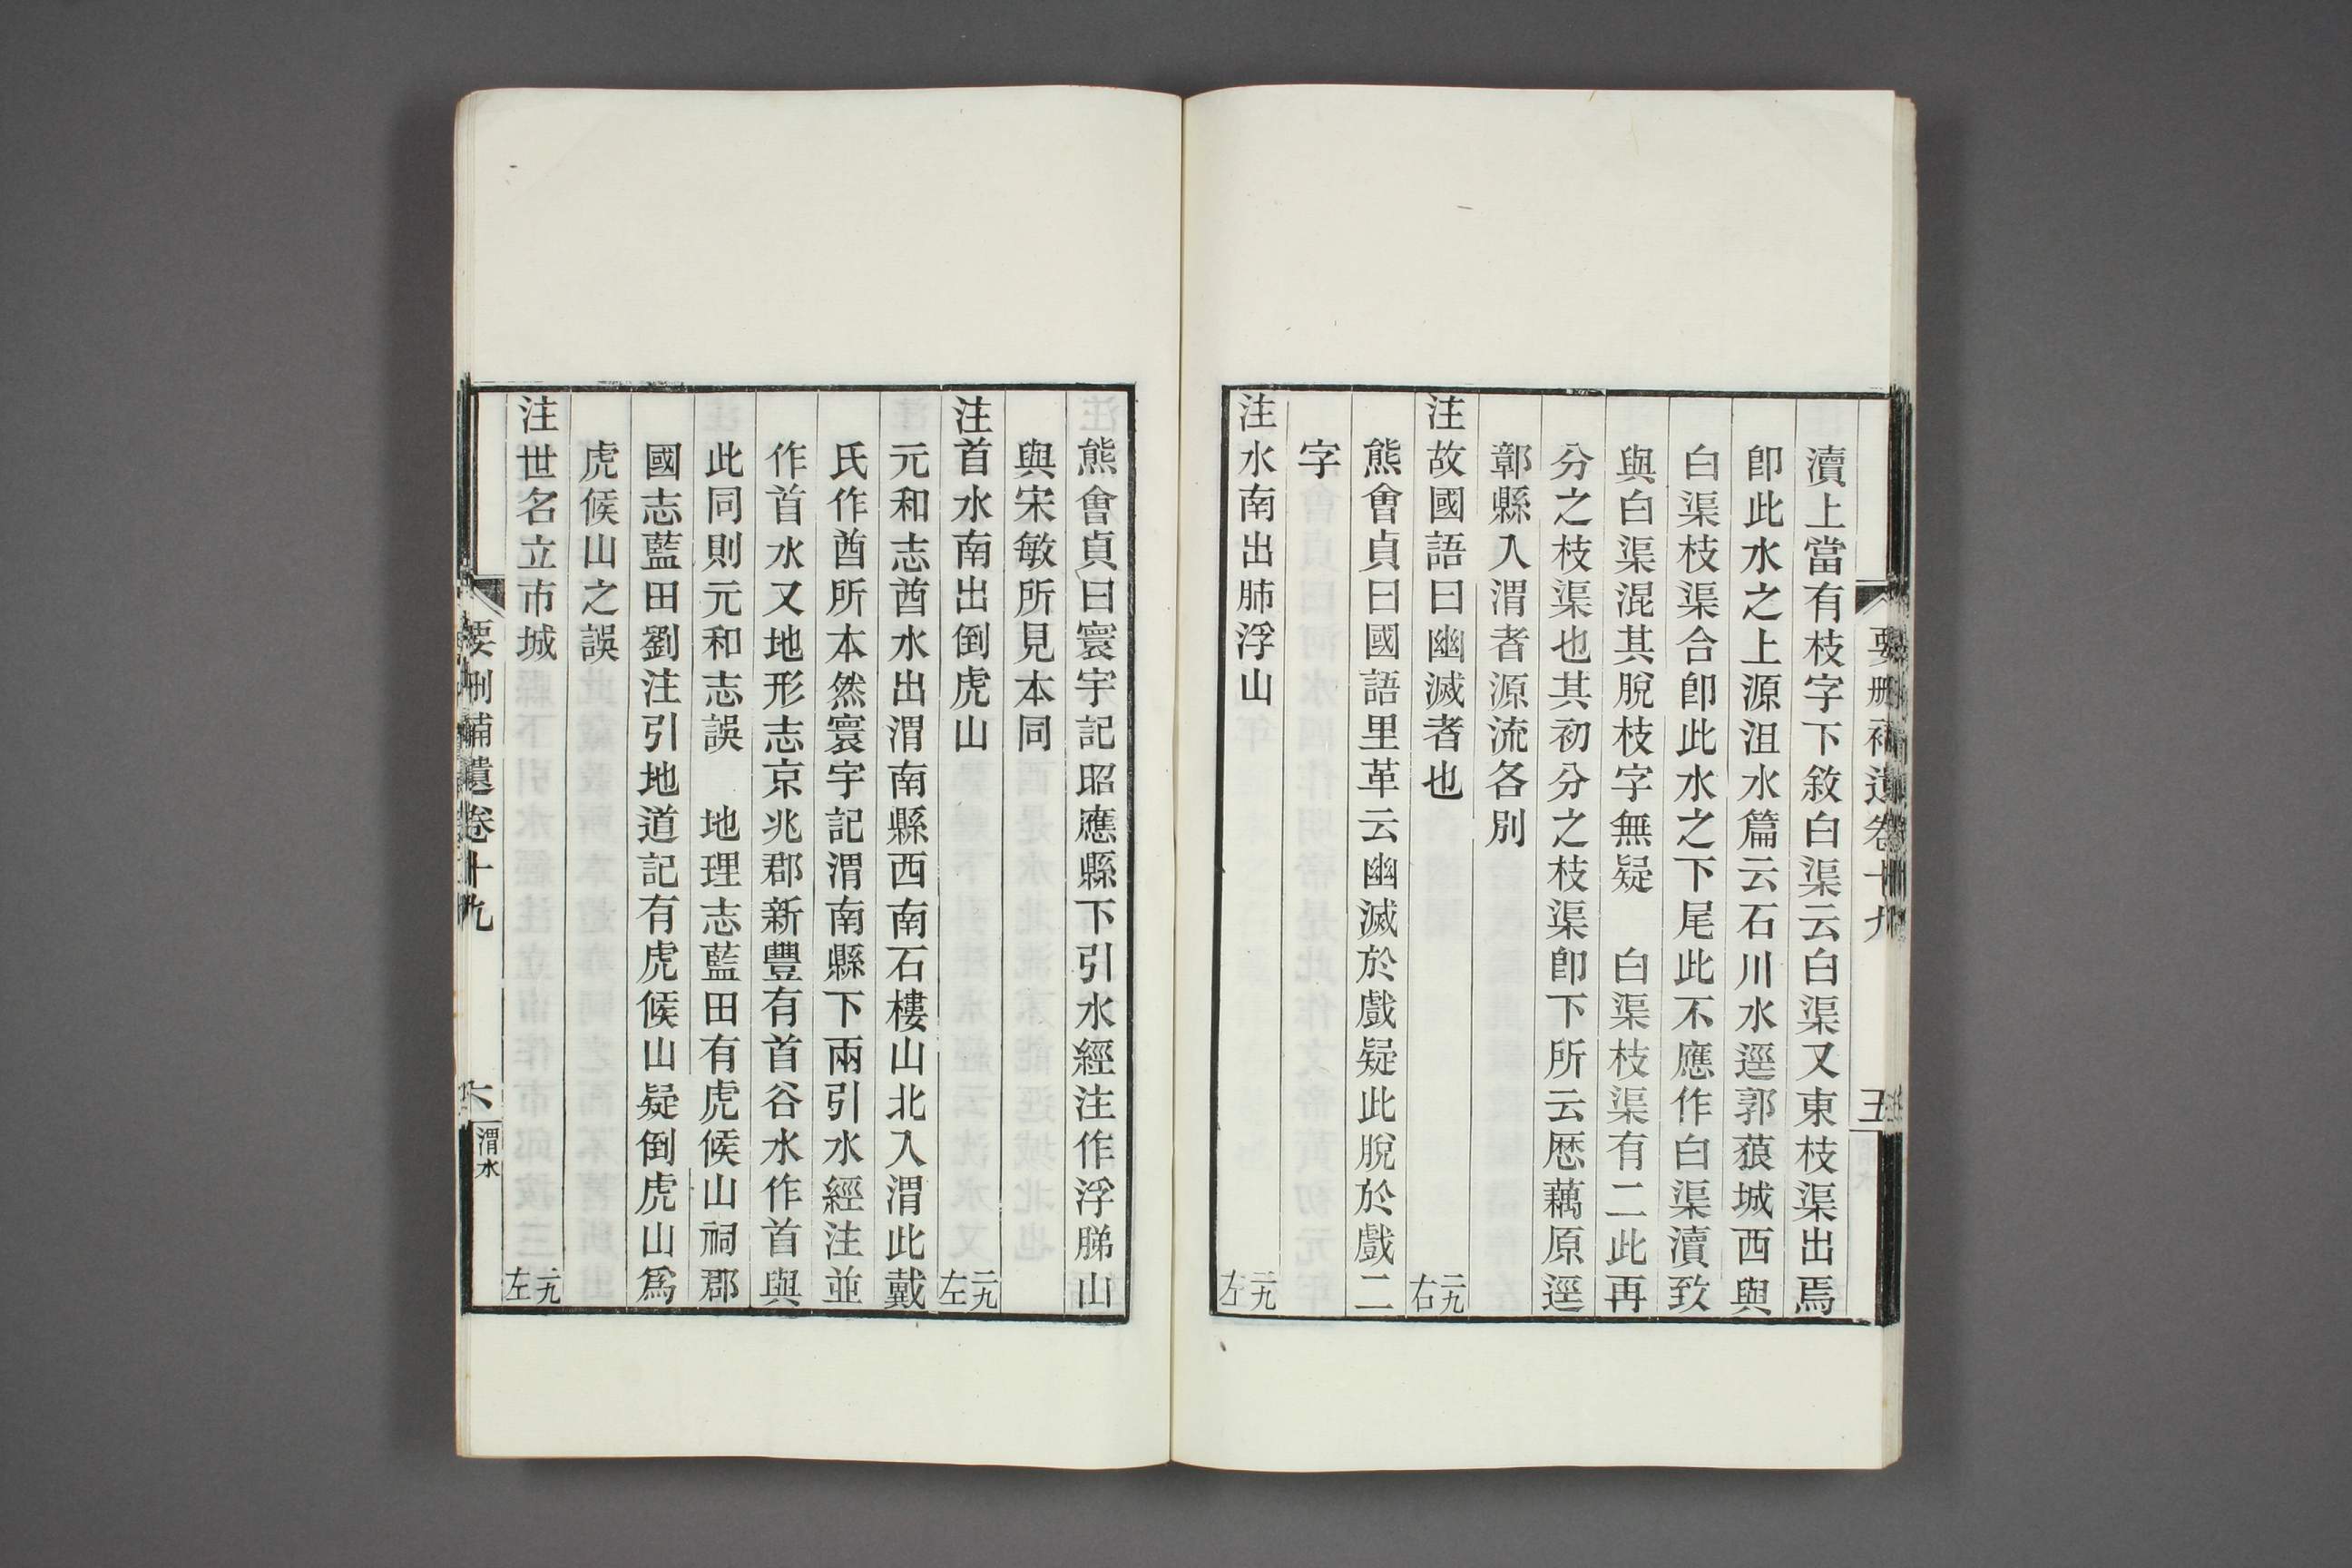 要刪補遺卷十九
五
瀆上當有枝字下敘白渠云白渠又東枝渠出焉
卽此水之上源沮水篇云石川水逕郭蒗城西與
白渠枝渠合卽此水之下尾此不應作白渠瀆致
與白渠混其脫枝字無疑　白渠枝渠有二此再
分之枝渠也其初分之枝渠卽下所云歷藕原逕
鄣縣入渭者源流各別
注故國語曰幽滅者也 二九右
熊會貞曰國語里革云幽滅於戲疑此脫於戲二
字
注水南出肺浮山 二九左
熊會貞曰寰宇記昭應縣下引水經注作浮胏山
與宋敏所見本同
注首水南出倒虎山 二九左
元和志酋水出渭南縣西南石樓山北入渭此戴
氏作酋所本然寰宇記渭南縣下兩引水經注並
作首水又地形志京兆郡新豐有首谷水作首與
此同則元和志誤　地理志藍田有虎候山祠郡
國志藍田劉注引地道記有虎候山疑倒虎山爲
虎候山之誤
注世名立市城 二九左
要刪補遺卷十九
六
渭水